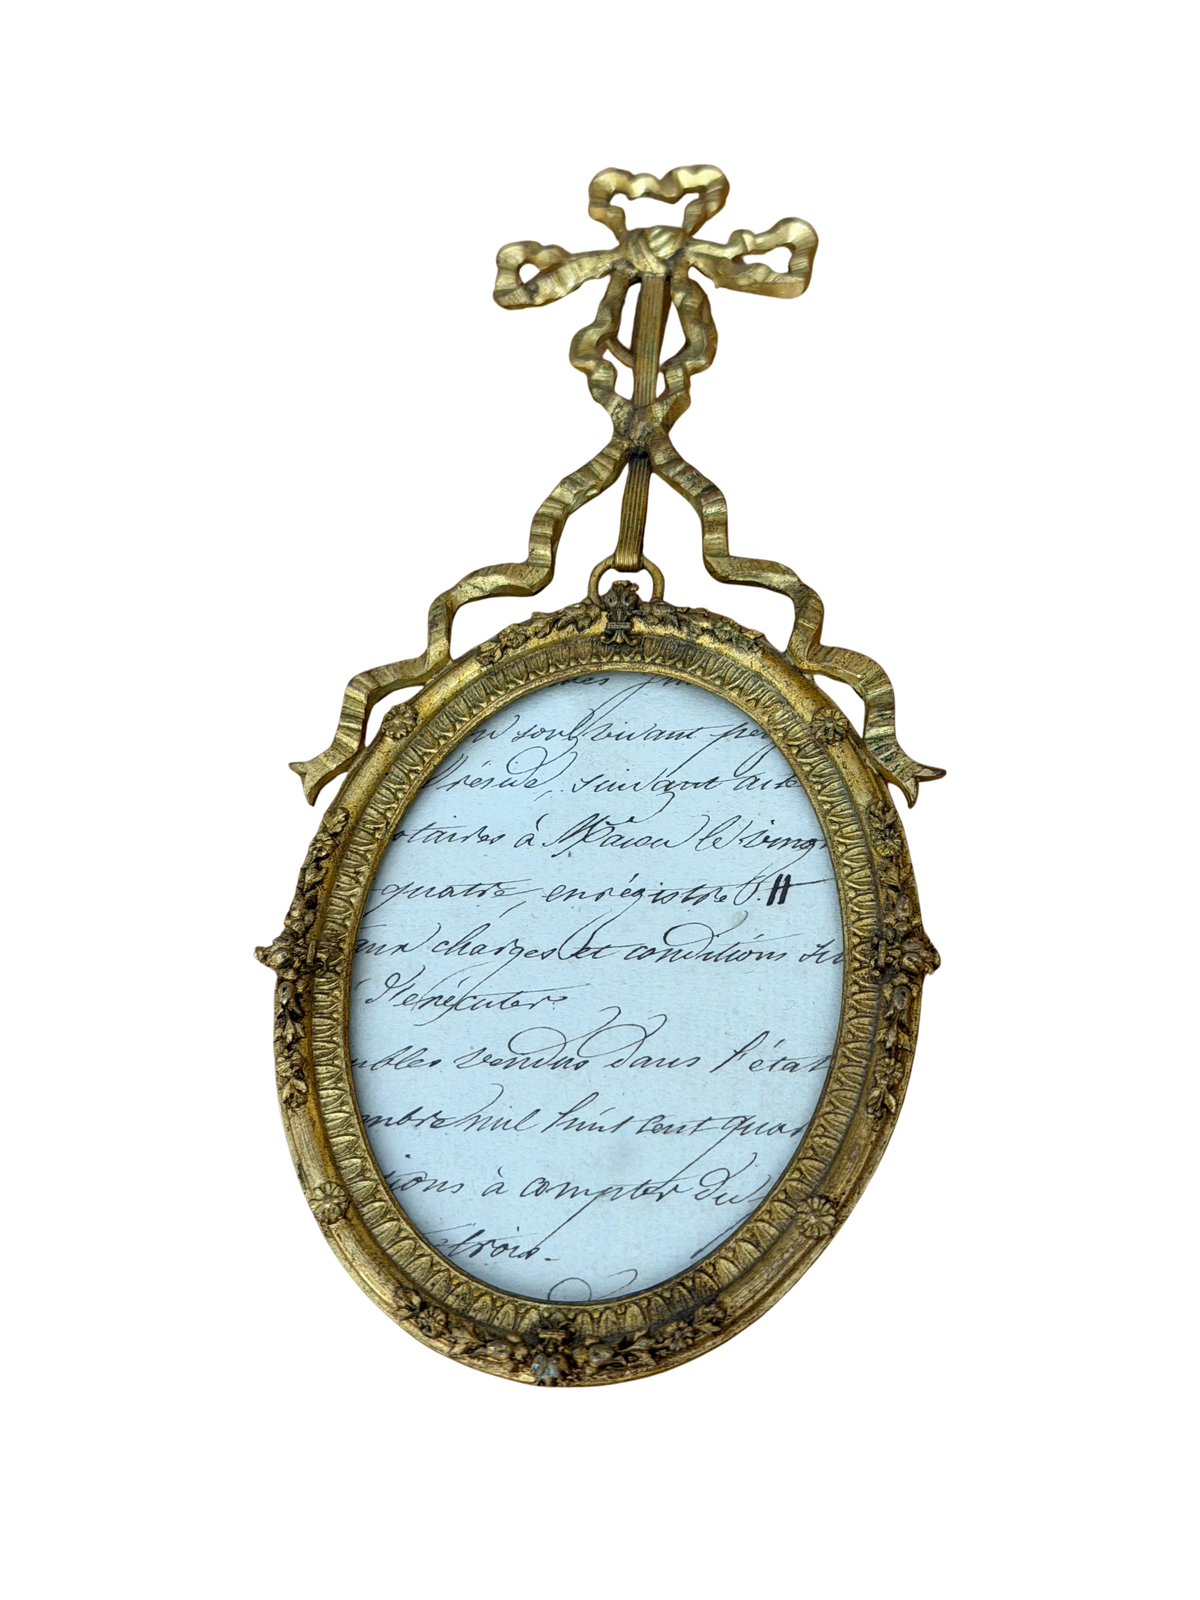 son vivant
réside, suivant acte
otaires à Mâcon le vingt
quatre, enregistré
aux charges et conditions su
d'exécuter.
ubles vendus dans l'état
mbre mil huit cent quar
sions à compter du
trois.